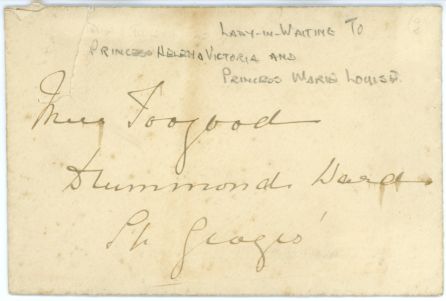 LADY-IN-WAITING TO
PRINCESS HELENA VICTORIA AND
PRINCESS MARIE LOUISE.
Miss Toogood
Drummond Ward
St Georges'